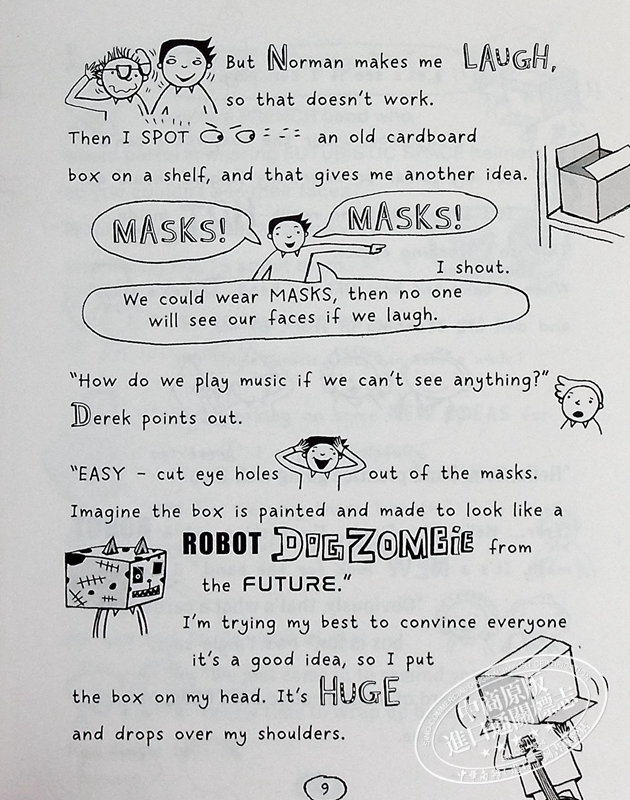 But Norman makes me LAUGH,
so that doesn't work.
Then I SPOT an old cardboard
box on a shelf, and that gives me another idea.
MASKS! MASKS!
I shout.
We could wear MASKS, then no one
will see our faces if we laugh.
"How do we play music if we can't see anything?"
Derek points out.
"EASY - cut eye holes out of the masks.
Imagine the box is painted and made to look like a
ROBOT DOGZOMBiE from
the FUTURE."
I'm trying my best to convince everyone
it's a good idea, so I put
the box on my head. It's HUGE
and drops over my shoulders.
中商原版
9